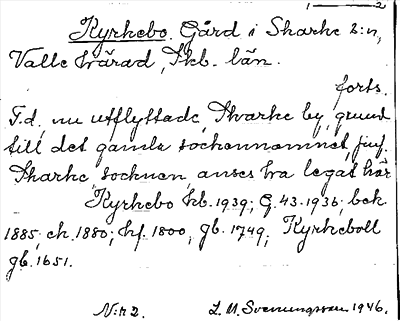 1 — 2
Kyrkebo. Gård i Skarke s:n,
Valle härad, Skb. län.
forts.
F.d., nu utflyttade, Skarke by, grund
till det gamla sockennamnet, jmf.
Skarke socknen, anses ha legat här
Kyrkebo kb. 1939; G. 43. 1936; bek
1885; ek. 1880; hf. 1800, gb. 1749; Kyrkeboll
gb. 1651.
N:r 2. L. M. Svenungsson 1946.